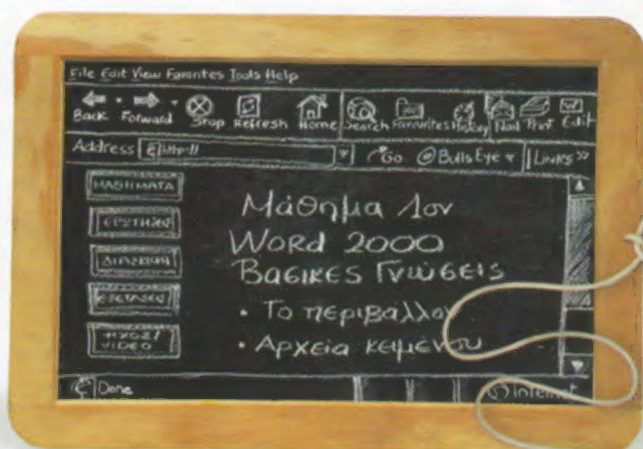 File Edit View Favorites Tools Help
Back Forward Stop Refresh Home Search Favourites History Mail Print Edit
Address http:// Go BullsEye Links »
ΜΑΘΗΜΑΤΑ
Μάθημα 1ον
Word 2000
Βασικες Γνώσεις
• Το περιβάλλον
• Αρχεία κειμένου
ΕΞΕΤΑΣΕΙΣ
ΗΧΟΣ/
VIDEO
Done Internet